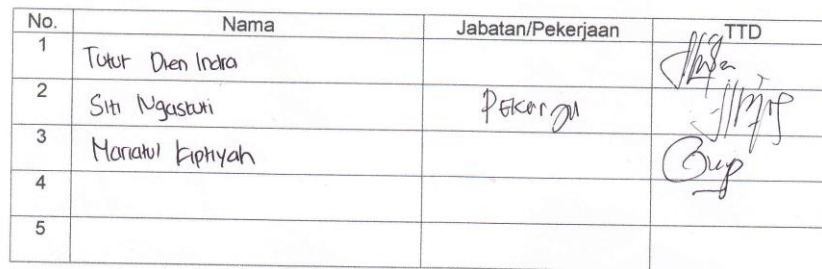 No. Nama Jabatan/Pekerjaan TTD
1 Tutur Dien Indra
2 Siti Ngastuti
3 Mariatul Kiptiyah
4
5